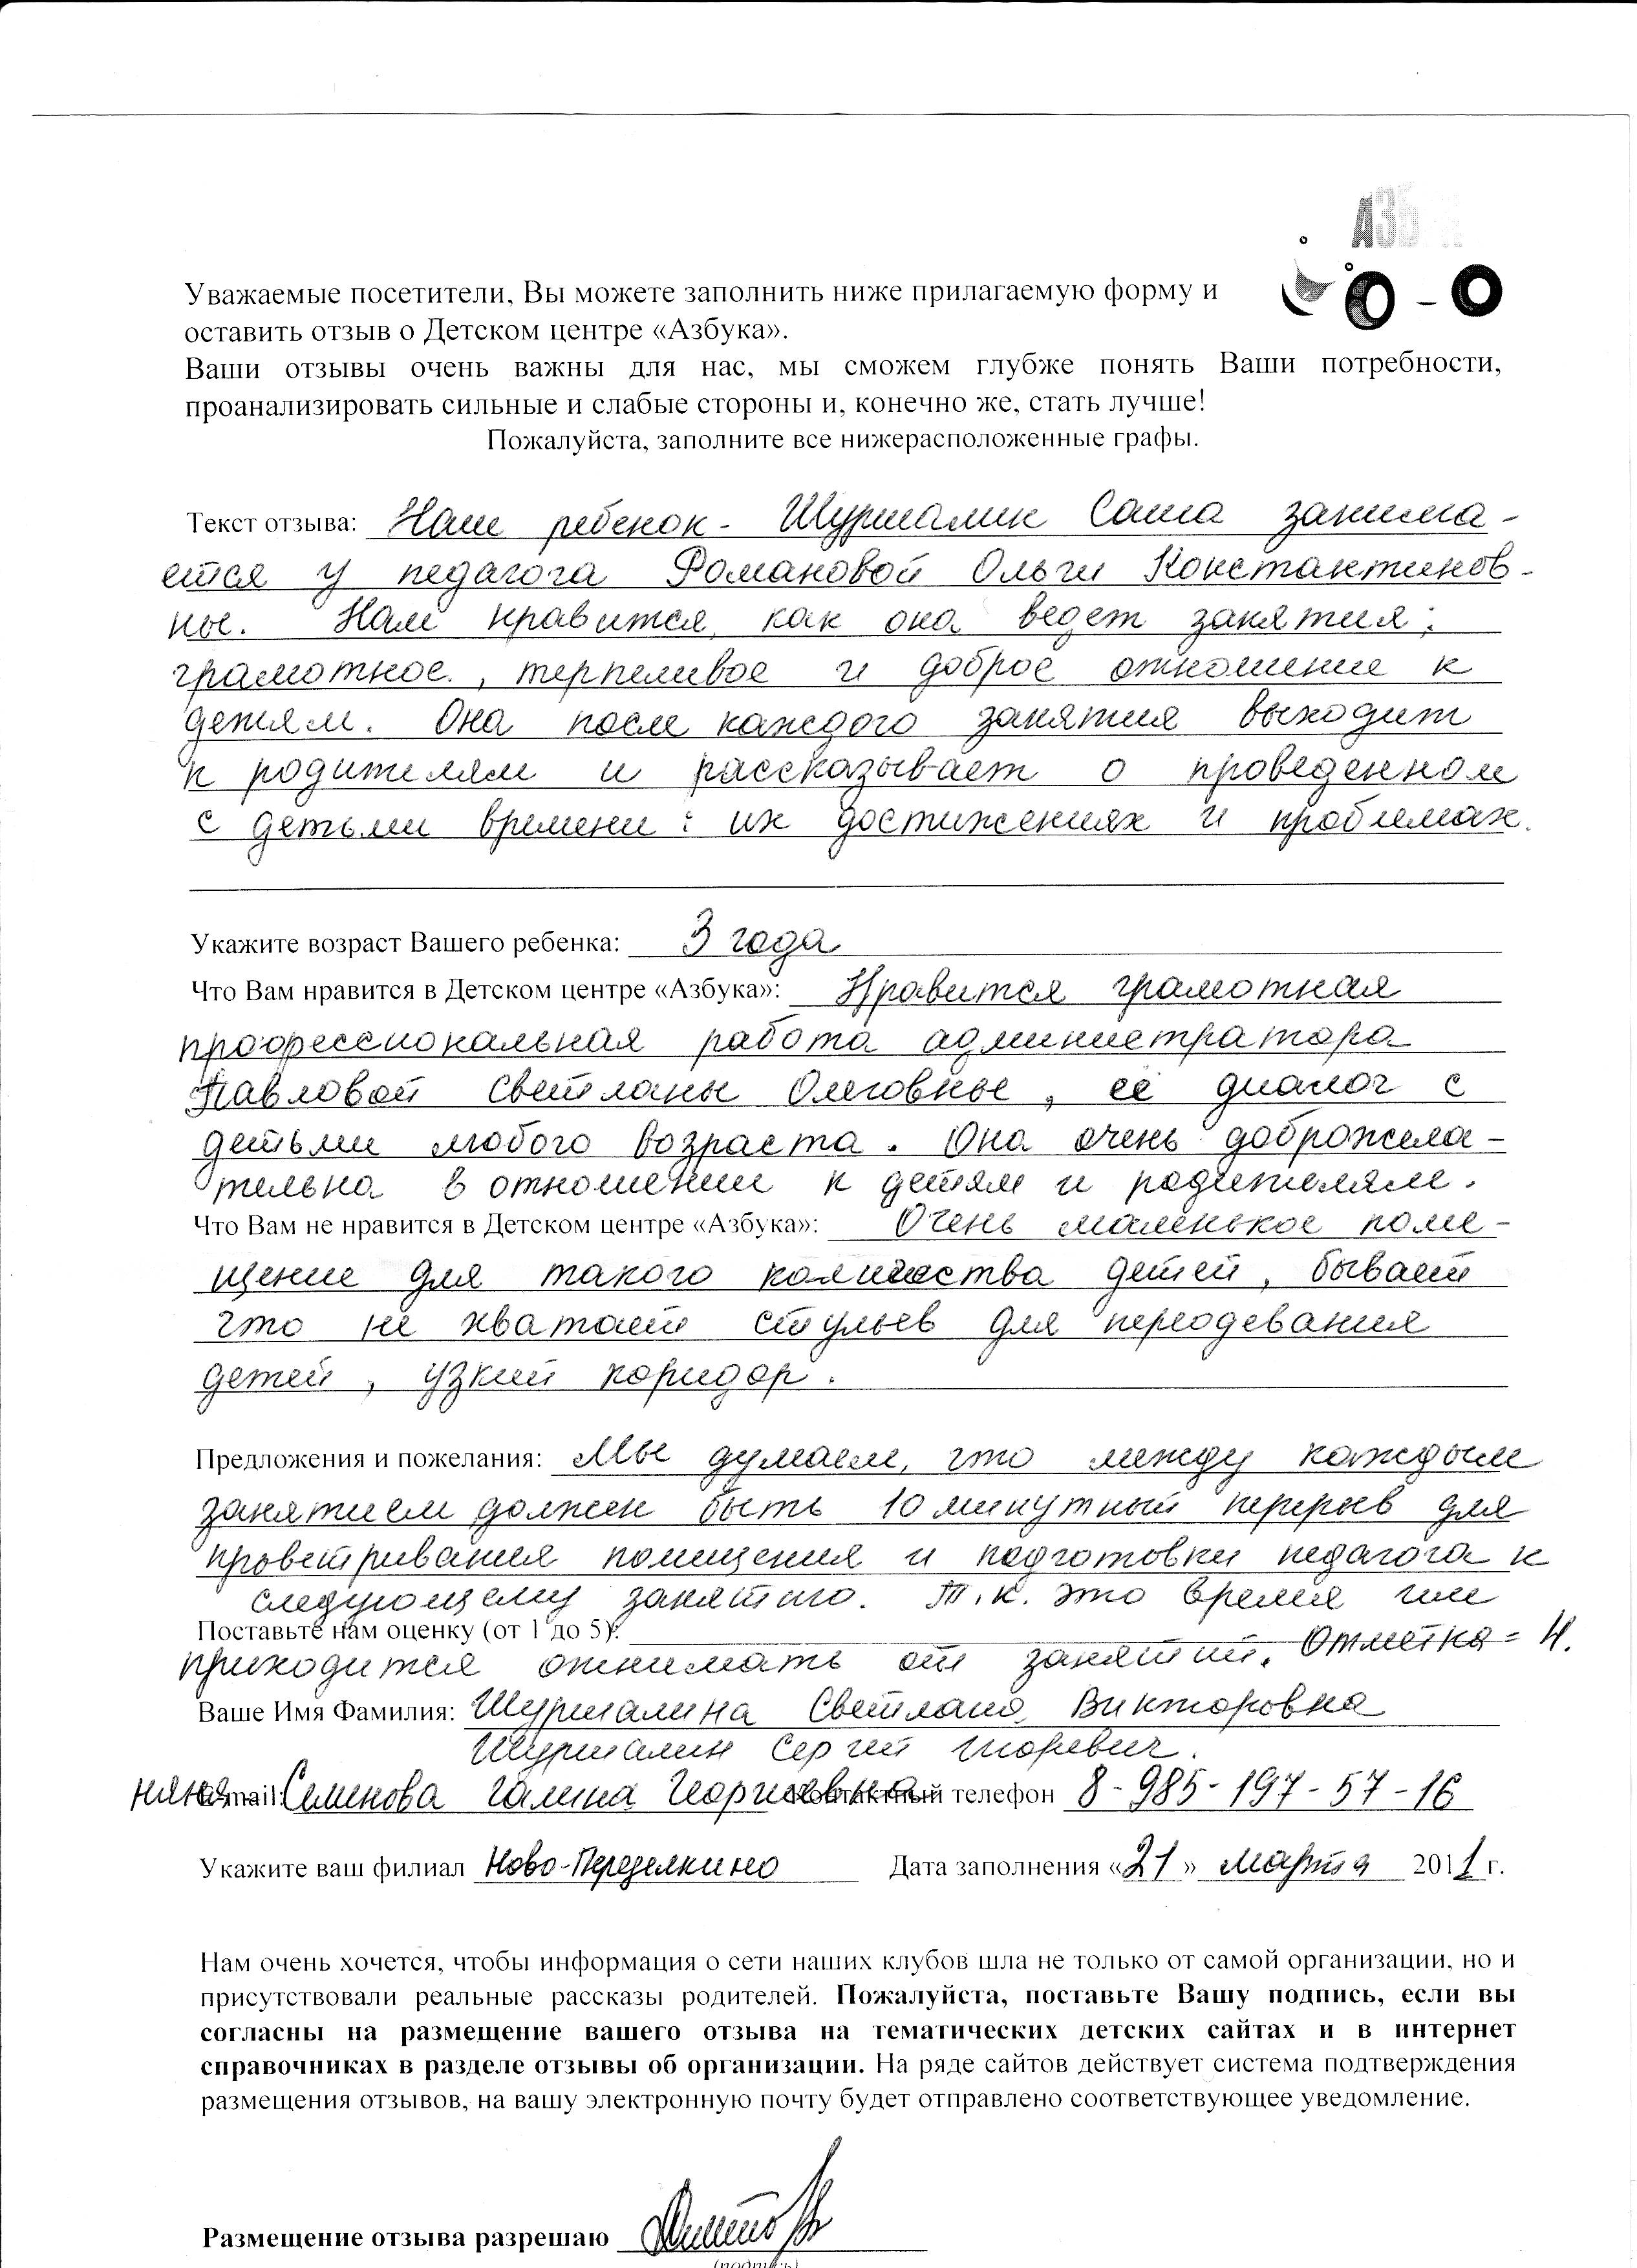 АЗБ
Уважаемые посетители, Вы можете заполнить ниже прилагаемую форму и
оставить отзыв о Детском центре «Азбука».
Ваши отзывы очень важны для нас, мы сможем глубже понять Ваши потребности,
проанализировать сильные и слабые стороны и, конечно же, стать лучше!
Пожалуйста, заполните все нижерасположенные графы.
Текст отзыва: Наш ребенок - Шуршалин Саша занима-
ется у педагога Романовой Ольги Константинов-
ны. Нам нравится, как она ведет занятия;
грамотное, терпеливое и доброе отношение к
детям. Она после каждого занятия выходит
к родителям и рассказывает о проведенном
с детьми времени: их достижениях и проблемах.
Укажите возраст Вашего ребенка: 3 года
Что Вам нравится в Детском центре «Азбука»: Нравится грамотная
профессиональная работа администратора
Павловой Светланы Олеговны, её диалог с
детьми любого возраста. Она очень доброжела-
тельна в отношении к детям и родителям.
Что Вам не нравится в Детском центре «Азбука»: Очень маленькое поме-
щение для такого количества детей, бывает
что не хватает стульев для переодевания
детей, узкий коридор.
Предложения и пожелания: Мы думаем, что между каждым
занятием должен быть 10 минутный перерыв для
проветривания помещения и подготовки педагога к
следующему занятию. Т.к. это время им
Поставьте нам оценку (от 1 до 5): Отметка - 4.
приходится отнимать от занятий.
Ваше Имя Фамилия: Шуршалина Светлана Викторовна
Шуршалин Сергей Игоревич.
няня - E-mail: Семенова Галина Георгиевна Контактный телефон 8-985-197-57-16
Укажите ваш филиал Ново-Переделкино Дата заполнения «21» марта 2011 г.
Нам очень хочется, чтобы информация о сети наших клубов шла не только от самой организации, но и
присутствовали реальные рассказы родителей. Пожалуйста, поставьте Вашу подпись, если вы
согласны на размещение вашего отзыва на тематических детских сайтах и в интернет
справочниках в разделе отзывы об организации. На ряде сайтов действует система подтверждения
размещения отзывов, на вашу электронную почту будет отправлено соответствующее уведомление.
Размещение отзыва разрешаю
(подпись)